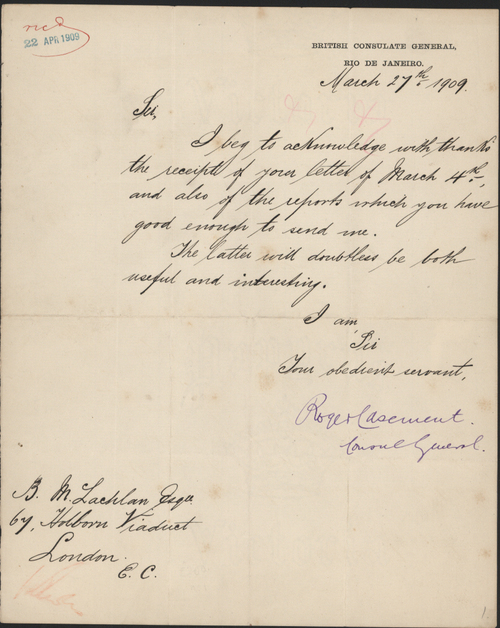 recd
22 APR 1909
BRITISH CONSULATE GENERAL,
RIO DE JANEIRO.
March 27th 1909.
Sir,
I beg to acknowledge with thanks
the receipt of your letter of March 4th,
and also of the reports which you have
good enough to send me.
The latter will doubtless be both
useful and interesting.
I am,
Sir
Your obedient servant,
Roger Casement.
Consul General.
B. McLachlan Esqre
67, Holborn Viaduct
London.
E. C.
1